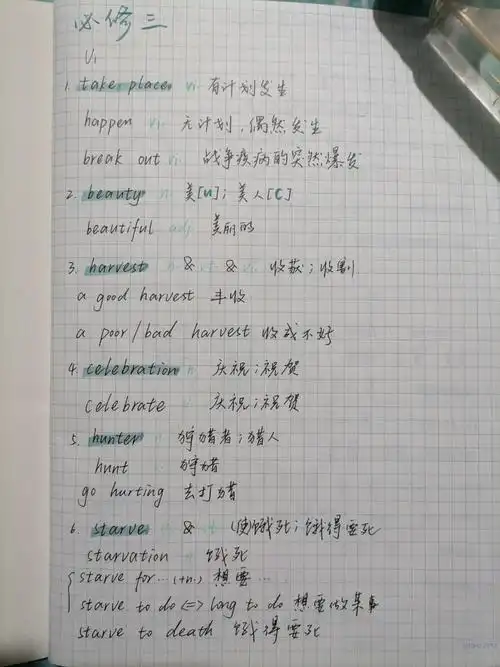 必修三
U1
1. take place vi. 有计划发生
happen vi. 无计划，偶然发生
break out vi. 战争疾病的突然爆发
2. beauty n. 美[U]；美人[C]
beautiful adj. 美丽的
3. harvest n. & vt. & vi. 收获；收割
a good harvest 丰收
a poor/bad harvest 收成不好
4. celebration n. 庆祝；祝贺
celebrate 庆祝；祝贺
5. hunter n. 狩猎者；猎人
hunt 狩猎
go hurting 去打猎
6. starve & (使)饿死；饿得要死
starvation n. 饿死
starve for…(+n.) 想要…
starve to do <=> long to do 想要做某事
starve to death 饿得要死